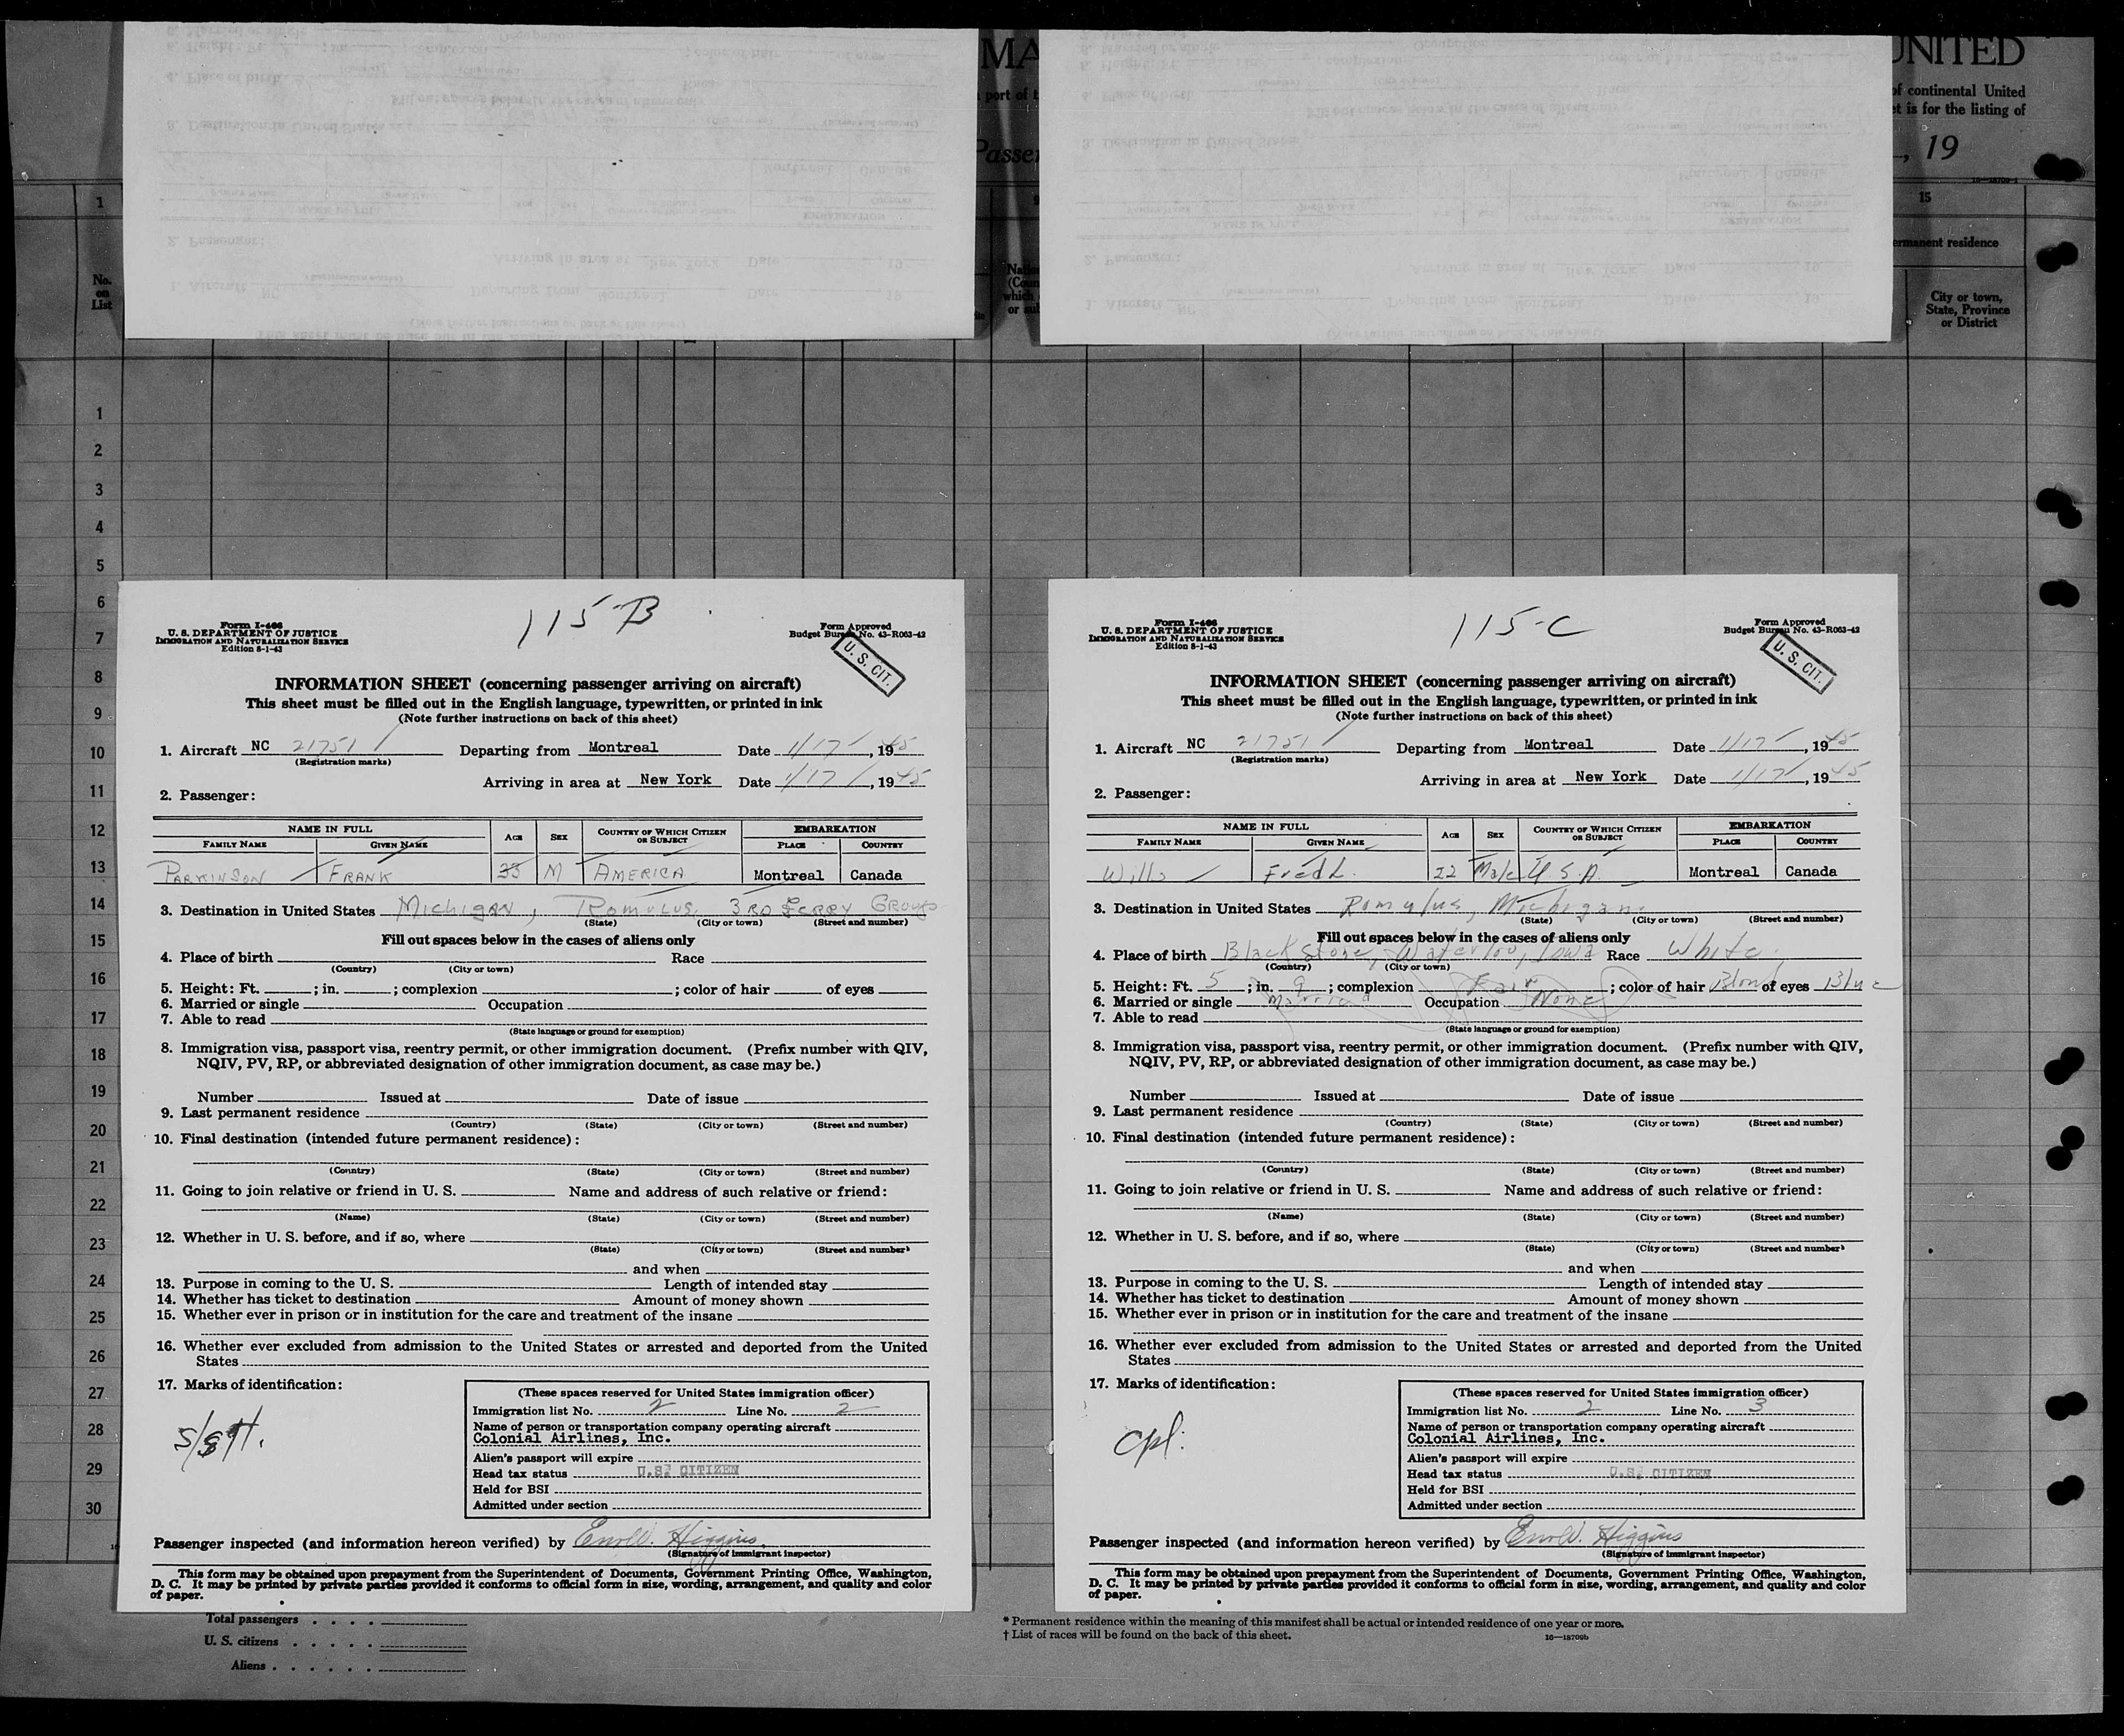 MA
UNITED
port of t
of continental United
et is for the listing of
Passen
, 19
16—18709-1
1
15
ermanent residence
No.
on
List
Natio
(Coun
which
or sub
City or town,
State, Province
or District
1
2
3
4
5
6
7
8
9
10
11
12
13
14
15
16
17
18
19
20
21
22
23
24
25
26
27
28
29
30
115-B
Form I-466
U. S. DEPARTMENT OF JUSTICE
IMMIGRATION AND NATURALIZATION SERVICE
Edition 8-1-43
Form Approved
Budget Bureau No. 43-R063-42
U. S. CIT.
INFORMATION SHEET (concerning passenger arriving on aircraft)
This sheet must be filled out in the English language, typewritten, or printed in ink
(Note further instructions on back of this sheet)
1. Aircraft NC 21751 Departing from Montreal Date 1/17, 1945
(Registration marks)
Arriving in area at New York Date 1/17, 1945
2. Passenger:
NAME IN FULL AGE SEX COUNTRY OF WHICH CITIZEN OR SUBJECT EMBARKATION
FAMILY NAME GIVEN NAME PLACE COUNTRY
PARKINSON FRANK 33 M AMERICA Montreal Canada
3. Destination in United States MICHIGAN, ROMULUS, 3RD FERRY GROUP
(State) (City or town) (Street and number)
Fill out spaces below in the cases of aliens only
4. Place of birth Race
(Country) (City or town)
5. Height: Ft. ; in. ; complexion ; color of hair of eyes
6. Married or single Occupation
7. Able to read
(State language or ground for exemption)
8. Immigration visa, passport visa, reentry permit, or other immigration document. (Prefix number with QIV,
NQIV, PV, RP, or abbreviated designation of other immigration document, as case may be.)
Number Issued at Date of issue
9. Last permanent residence
(Country) (State) (City or town) (Street and number)
10. Final destination (intended future permanent residence):
(Country) (State) (City or town) (Street and number)
11. Going to join relative or friend in U. S. Name and address of such relative or friend:
(Name) (State) (City or town) (Street and number)
12. Whether in U. S. before, and if so, where
(State) (City or town) (Street and number)
and when
13. Purpose in coming to the U. S. Length of intended stay
14. Whether has ticket to destination Amount of money shown
15. Whether ever in prison or in institution for the care and treatment of the insane
16. Whether ever excluded from admission to the United States or arrested and deported from the United
States
17. Marks of identification:
S/Sgt.
(These spaces reserved for United States immigration officer)
Immigration list No. 2 Line No. 2
Name of person or transportation company operating aircraft
Colonial Airlines, Inc.
Alien's passport will expire
Head tax status U.S. CITIZEN
Held for BSI
Admitted under section
Passenger inspected (and information hereon verified) by Enroll W. Higgins
(Signature of immigrant inspector)
This form may be obtained upon prepayment from the Superintendent of Documents, Government Printing Office, Washington,
D. C. It may be printed by private parties provided it conforms to official form in size, wording, arrangement, and quality and color
of paper.
115-C
Form I-466
U. S. DEPARTMENT OF JUSTICE
IMMIGRATION AND NATURALIZATION SERVICE
Edition 8-1-43
Form Approved
Budget Bureau No. 43-R063-42
U. S. CIT.
INFORMATION SHEET (concerning passenger arriving on aircraft)
This sheet must be filled out in the English language, typewritten, or printed in ink
(Note further instructions on back of this sheet)
1. Aircraft NC 21751 Departing from Montreal Date 1/17, 1945
(Registration marks)
Arriving in area at New York Date 1/17, 1945
2. Passenger:
NAME IN FULL AGE SEX COUNTRY OF WHICH CITIZEN OR SUBJECT EMBARKATION
FAMILY NAME GIVEN NAME PLACE COUNTRY
Wills Fred L. 22 Male U.S.A. Montreal Canada
3. Destination in United States Romulus, Michigan
(State) (City or town) (Street and number)
Fill out spaces below in the cases of aliens only
4. Place of birth Black Stone, Waterloo, Iowa Race White
(Country) (City or town)
5. Height: Ft. 5; in. 9; complexion Fair; color of hair Blon of eyes Blue
6. Married or single Married Occupation None
7. Able to read
(State language or ground for exemption)
8. Immigration visa, passport visa, reentry permit, or other immigration document. (Prefix number with QIV,
NQIV, PV, RP, or abbreviated designation of other immigration document, as case may be.)
Number Issued at Date of issue
9. Last permanent residence
(Country) (State) (City or town) (Street and number)
10. Final destination (intended future permanent residence):
(Country) (State) (City or town) (Street and number)
11. Going to join relative or friend in U. S. Name and address of such relative or friend:
(Name) (State) (City or town) (Street and number)
12. Whether in U. S. before, and if so, where
(State) (City or town) (Street and number)
and when
13. Purpose in coming to the U. S. Length of intended stay
14. Whether has ticket to destination Amount of money shown
15. Whether ever in prison or in institution for the care and treatment of the insane
16. Whether ever excluded from admission to the United States or arrested and deported from the United
States
17. Marks of identification:
Cpl.
(These spaces reserved for United States immigration officer)
Immigration list No. 2 Line No. 3
Name of person or transportation company operating aircraft
Colonial Airlines, Inc.
Alien's passport will expire
Head tax status U.S. CITIZEN
Held for BSI
Admitted under section
Passenger inspected (and information hereon verified) by W. Higgins
(Signature of immigrant inspector)
This form may be obtained upon prepayment from the Superintendent of Documents, Government Printing Office, Washington,
D. C. It may be printed by private parties provided it conforms to official form in size, wording, arrangement, and quality and color
of paper.
Total passengers . . . .
U. S. citizens . . . . .
Aliens . . . . . .
* Permanent residence within the meaning of this manifest shall be actual or intended residence of one year or more.
† List of races will be found on the back of this sheet.
16—18709b